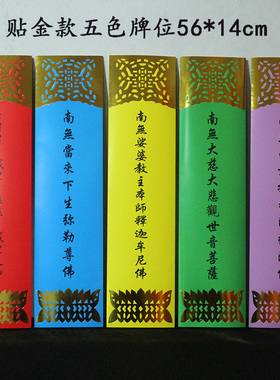 贴金款五色牌位56*14cm
南無當來下生弥勒尊佛
南無娑婆教主本師釋迦牟尼佛
南無大慈大悲觀世音菩薩